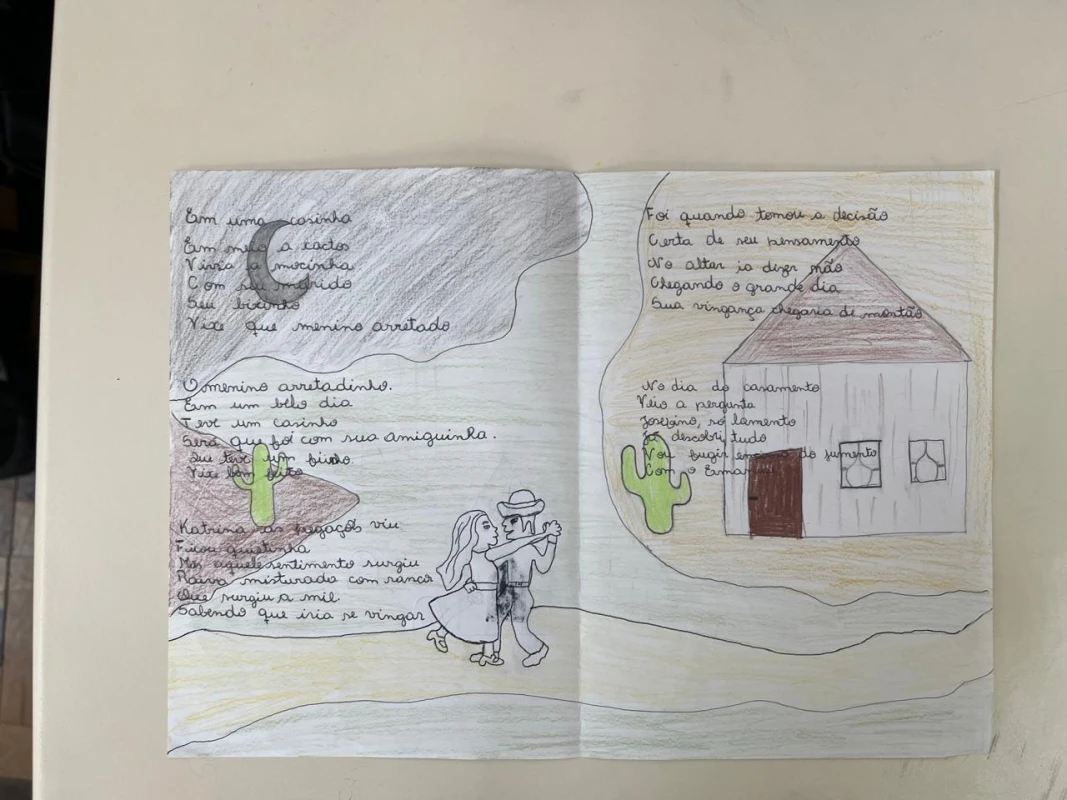 Em uma casinha
Em meio a cactos
Vivia a mocinha
Com seu marido
Seu bixinho
Vixe que menino arretado
O menino arretadinho.
Em um belo dia
Teve um casinho
Será que foi com sua amiguinha.
Que teve um
Vixe bem feito
Katrina as pegações viu
Ficou quietinha
Mas aquele sentimento surgiu
Raiva misturada com ranço
Que surgiu a mil
Sabendo que iria se vingar
Foi quando tomou a decisão
Certa de seu pensamento
No altar ia dizer não
Chegando o grande dia
Sua vingança chegaria de montão
No dia do casamento
Veio a pergunta
Josefino, só lamento
Já descobri tudo
Vou fugir em do jumento
Com o